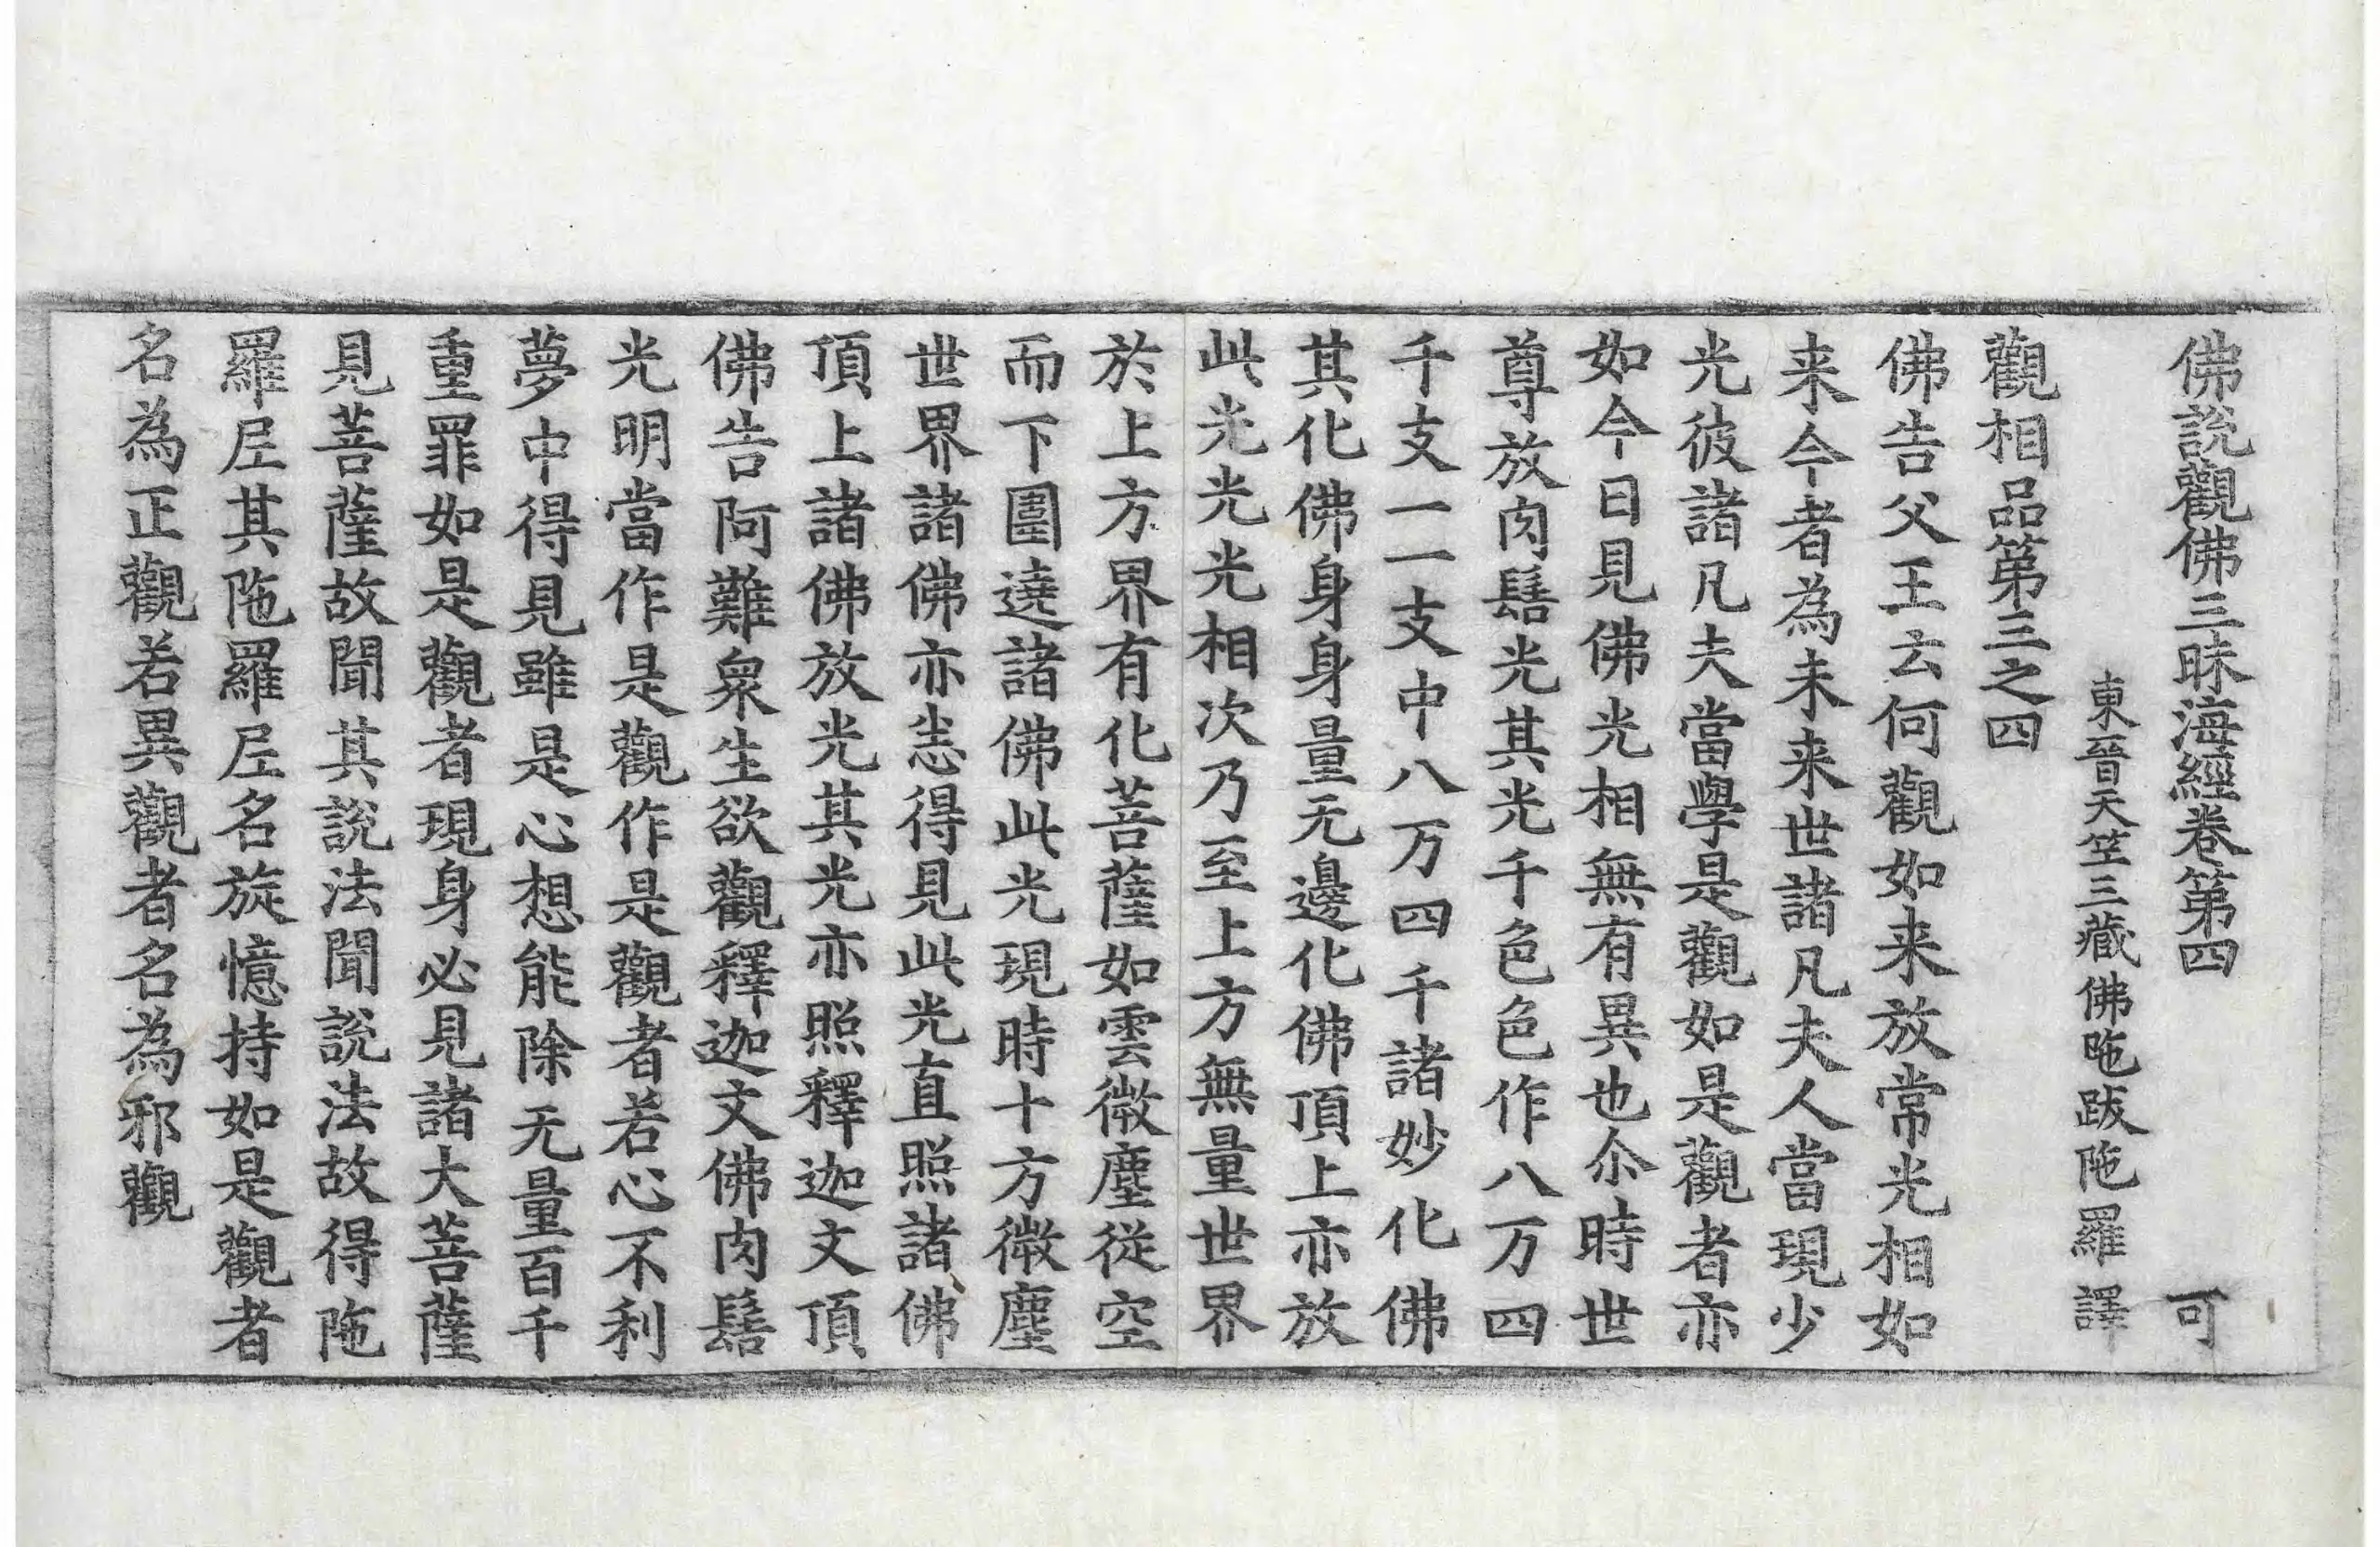 佛說觀佛三昧海經卷第四 可
東晉天竺三藏佛陁跋陁羅譯
觀相品第三之四
佛告父王云何觀如来放常光相如
来今者為未来世諸凡夫人當現少
光彼諸凡夫當學是觀如是觀者亦
如今日見佛光相無有異也尒時世
尊放肉髻光其光千色色作八万四
千支一一支中八万四千諸妙化佛
其化佛身身量无邊化佛頂上亦放
此光光光相次乃至上方無量世界
於上方界有化菩薩如雲微塵従空
而下圍遶諸佛此光現時十方微塵
世界諸佛亦悉得見此光直照諸佛
頂上諸佛放光其光亦照釋迦文頂
佛告阿難衆生欲觀釋迦文佛肉髻
光明當作是觀作是觀者若心不利
夢中得見雖是心想能除无量百千
重罪如是觀者現身必見諸大菩薩
見菩薩故聞其說法聞說法故得陁
羅尼其陁羅尼名旋憶持如是觀者
名為正觀若異觀者名為邪觀